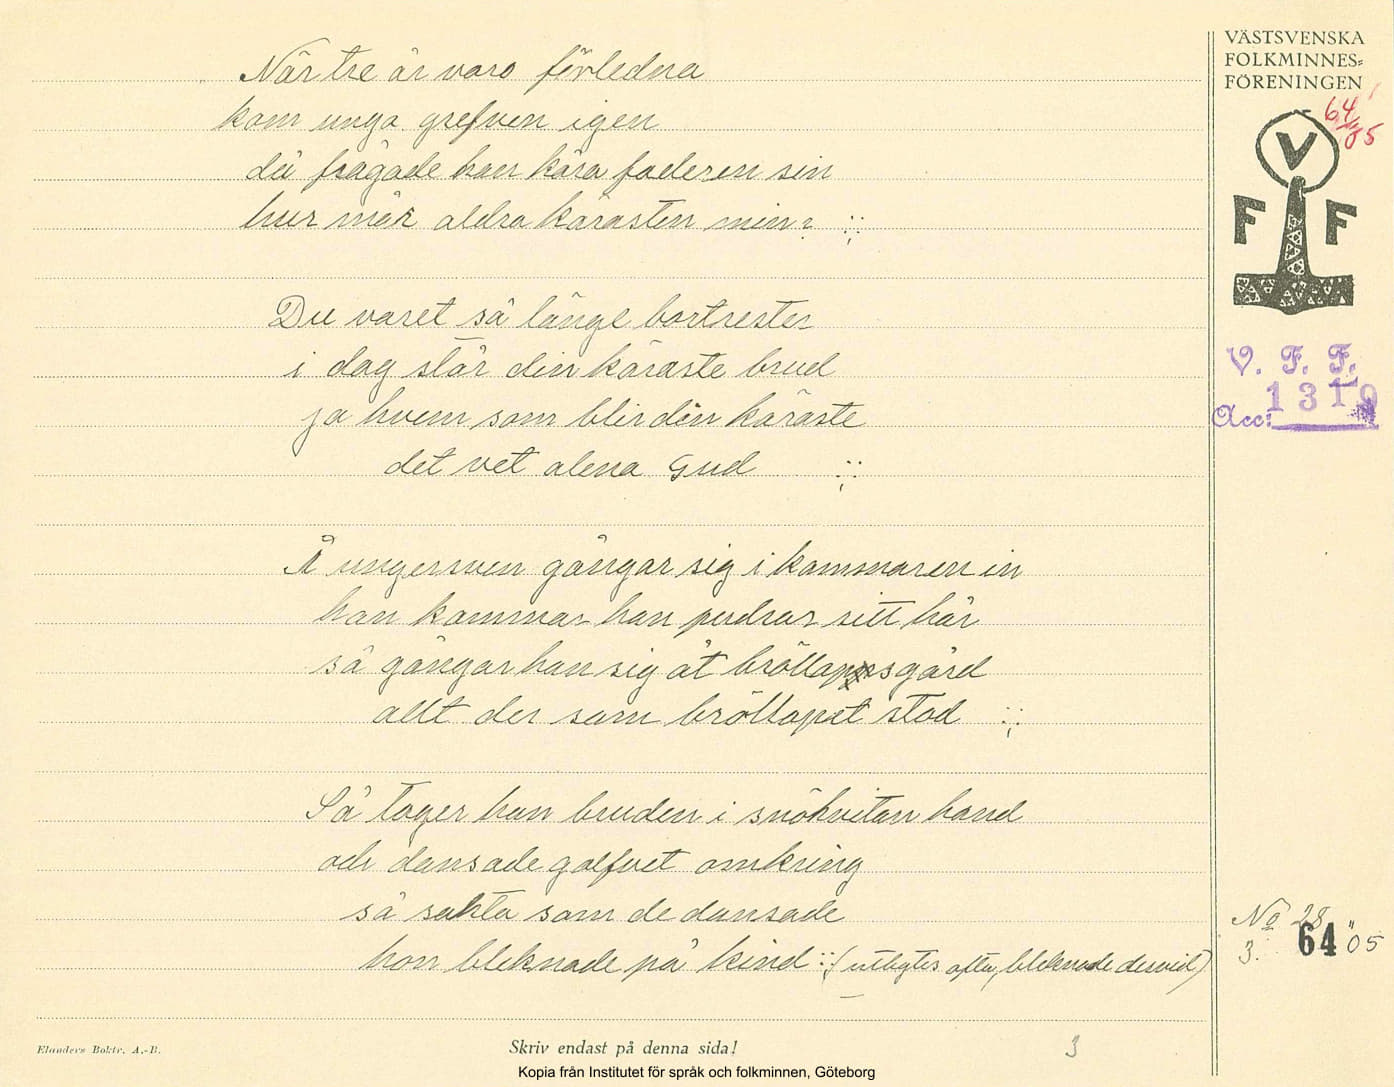 När tre år varo förledna
kom unga grefven igen
då frågade han kära faderen sin
hur mår aldra kärasten min? :;:
Du varet så länge bortrester
i dag står din käraste brud
ja hvem som blir din käraste
det vet alena Gud :;:
Å ungersven gångar sig i kammaren in
han kammar han pudrar sitt hår
så gångar han sig åt bröllapsgård
allt der som bröllopet stod :;:
Så tager han bruden i snöhvitan hand
och dansade golfvet omkring
så sakta som de dansade
hon bleknade på kind :;: (utbytes ofta, bleknade dervid)
VÄSTSVENSKA
FOLKMINNES=
FÖRENINGEN
64/05
V
F F
V. F. F.
Acc: 1319
No 28
3. 64 "05
Elanders Boktr. A.-B.
Skriv endast på denna sida!
3
Kopia från Institutet för språk och folkminnen, Göteborg